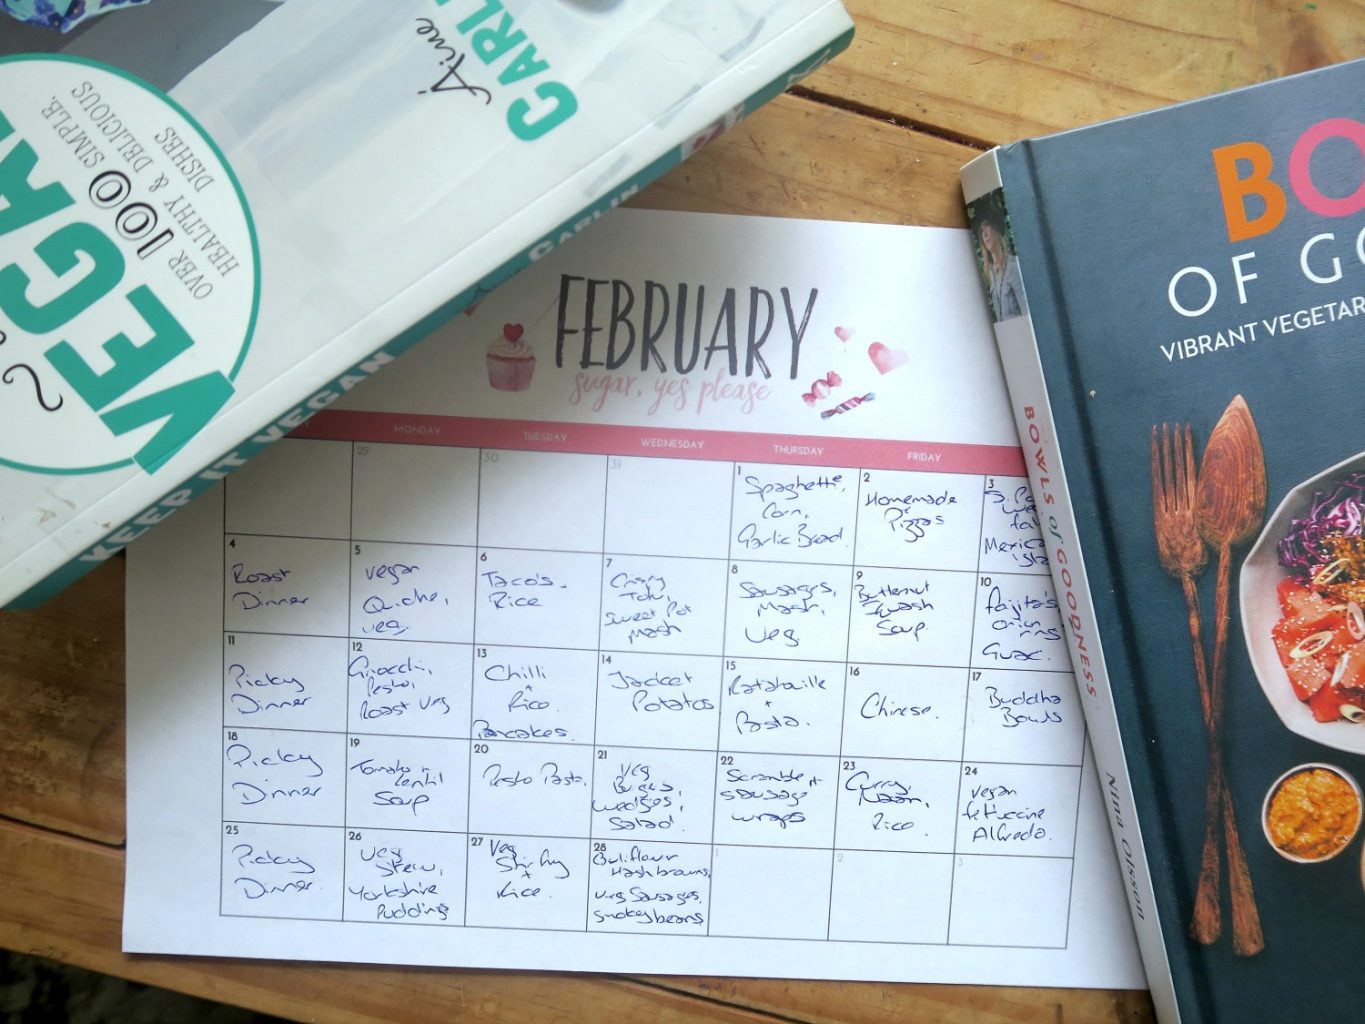 Áine
CARL
VEGAN
OVER 100 SIMPLE,
HEALTHY & DELICIOUS
DISHES
KEEP IT VEGAN
CARLIN
FEBRUARY
sugar, yes please
MONDAY
TUESDAY
WEDNESDAY
THURSDAY
FRIDAY
29
30
31
1
Spaghetti,
Corn,
Garlic Bread.
2
Homemade
Pizzas
3
Mexica
4
Roast
Dinner
5
Vegan
Quiche,
veg.
6
Taco's -
Rice
7
Crispy
Tofu,
Sweet Pot
Mash
8
Sausages,
Mash,
Veg
9
Butternut
Squash
Soup
10
Fajita's
onion
rings
Guac.
11
Picky
Dinner
12
Gnocchi,
Pesto,
Roast Veg
13
Chilli
+
Rice.
Pancakes.
14
Jacket
Potatos
15
Ratatouille
+
Pasta.
16
Chinese.
17
Buddha
Bowls
18
Picky
Dinner
19
Tomato +
Lentil
Soup
20
Pesto Pasta.
21
Veg
Burgers,
Wedges,
Salad.
22
Scramble +
Sausage
wraps
23
Curry,
Naan,
Rice.
24
Vegan
Fettuccine
Alfredo.
25
Picky
Dinner.
26
Veg
Stew,
Yorkshire
Puddings
27
Veg
Stir Fry
+
Rice.
28
Cauliflour
Hashbrowns,
Veg Sausages,
Smokey beans
1
2
3
BO
OF GO
VIBRANT VEGETAR
BOWLS of GOODNESS
Nina Olsson